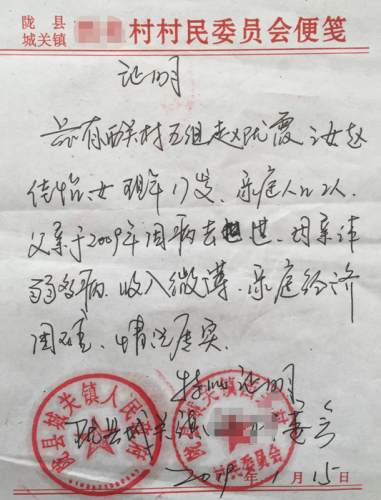 陇县
城关镇 村村民委员会便笺
证明
兹有 村五组赵 霞之女赵
佳怡,女现年17岁、家庭人口2人、
父亲于2009年因病去世、母亲体
弱多病、收入微薄、家庭经济
困难、情况属实、
特此证明
陇县城关镇 委会
20 年1月15日
陇县城关镇人民政府
陇县城关镇 村民委员会